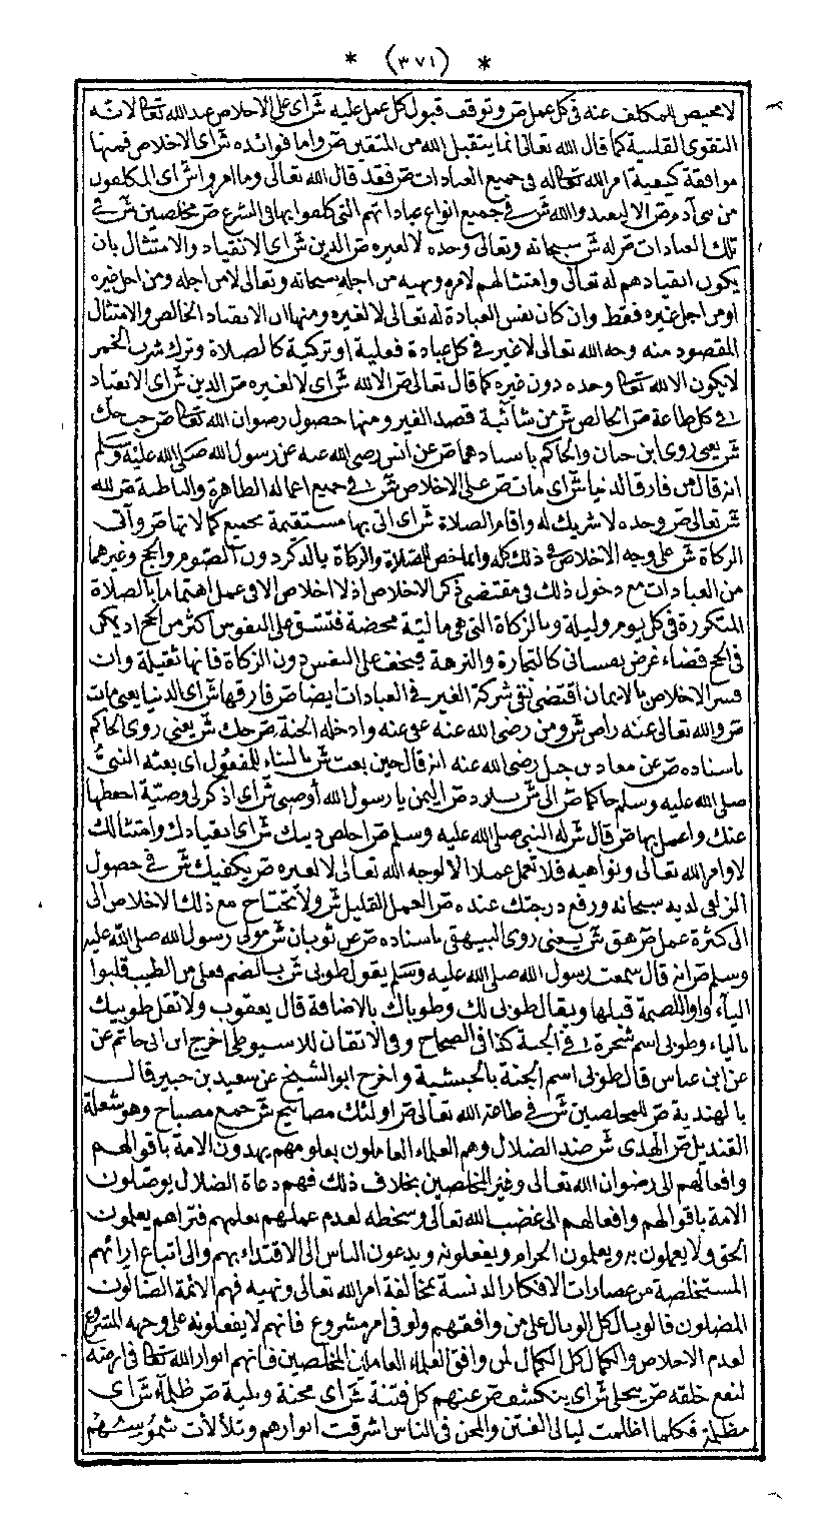 * (٣٧١) *
لا محيص المكلف عنه في كل عمل ص وتوقف قبول كل عمل عليه ش أي على الاخلاص عند الله تعالى لانه
التقوى القلبية كما قال الله تعالى انما يتقبل الله من المتقين ص واما فوائده ش أي الاخلاص فمنها
موافقة كيفية امر الله تعالى له في جميع العبادات ص فقد قال الله تعالى وما امروا ش أي المكلفون
من بني آدم ص الا ليعبدوا الله ش في جميع انواع عباداتهم التي كلفوا بها في الشرع ص مخلصين ش في
تلك العبادات ص له ش سبحانه وتعالى وحده لا لغيره ص الدين ش أي الانقياد والامتثال بان
يكون انقيادهم له تعالى وامتثالهم لامره ونهيه من اجله سبحانه وتعالى لا من اجله ومن اجل غيره
او من اجل غيره فقط وان كان نفس العبادة له تعالى لا لغيره ومنها ان الانقياد الخالص والامتثال
المقصود منه وجه الله تعالى لا غير في كل عبادة فعلية او تركية كالصلاة وترك شرب الخمر
لا يكون الا لله تعالى وحده دون غيره كما قال تعالى ص الا لله ش أي لا لغيره ص الدين ش أي الانقياد
في كل طاعة ص الخالص ش من شائبة قصد الغير ومنها حصول رضوان الله تعالى ص حب حك
ش يعني روى ابن حبان والحاكم باسنادهما ص عن انس رضي الله عنه عن رسول الله صلى الله عليه وسلم
انه قال من فارق الدنيا ش أي مات ص على الاخلاص ش في جميع اعماله الظاهرة والباطنة ص لله
ش تعالى ص وحده لا شريك له واقام الصلاة ش أي اتى بها مستقيمة بجميع كمالاتها ص وآتى
الزكاة ش على وجه الاخلاص في ذلك كله وانما خص الصلاة والزكاة بالذكر دون الصوم والحج وغيرهما
من العبادات مع دخول ذلك في مقتضى ذكر الاخلاص اذ لا اخلاص الا في عمل اهتماما بالصلاة
المتكررة في كل يوم وليلة وبالزكاة التي هي مالية محضة فتشق على النفوس اكثر من الحج اذ يكون
في الحج قضاء غرض نفساني كالتجارة والنزهة فيخف على النفس دون الزكاة فانها ثقيلة وان
فسر الاخلاص بالايمان اقتضى نفي شركة الغير في العبادات ايضا ص فارقها ش أي الدنيا يعني مات
ص والله تعالى عنه راض ش ومن رضي الله عنه عفى عنه وادخله الجنة ص حك ش يعني روى الحاكم
باسناده ص عن معاذ بن جبل رضي الله عنه انه قال حين بعث ش بالبناء للمفعول أي بعثه النبي
صلى الله عليه وسلم حاكما ص الى ش بلاد ص اليمن يا رسول الله أوصني ش أي اذكر لي وصية احفظها
عنك واعمل بها ص قال ش له النبي صلى الله عليه وسلم ص اخلص دينك ش أي انقيادك وامتثالك
لاوامر الله تعالى ونواهيه فلا تعمل عملا الا لوجه الله تعالى لا لغيره ص يكفيك ش في حصول
الزلفى لديه سبحانه ورفع درجتك عنده ص العمل القليل ش ولا تحتاج مع ذلك الاخلاص الى
الى كثرة عمل ص هق ش يعني روى البيهقي باسناده ص عن ثوبان ش مولى رسول الله صلى الله عليه
وسلم ص انه قال سمعت رسول الله صلى الله عليه وسلم يقول طوبى ش بالضم فعلى من الطيب قلبوا
الياء واوا للضمة قبلها ويقال طوبى لك وطوباك بالاضافة قال يعقوب ولا تقل طوبيك
بالياء وطوبى اسم شجرة في الجنة كذا في الصحاح وفي الاتقان للاسيوطي اخرج ابن ابي حاتم عن
عن ابن عباس قال طوبى اسم الجنة بالحبشية واخرج ابو الشيخ عن سعيد بن جبير قال
بالهندية ص للمخلصين ش في طاعة الله تعالى ص اولئك مصابيح ش جمع مصباح وهو شعلة
القنديل ص الهدى ش ضد الضلال وهم العلماء العاملون بعلومهم يهدون الامة باقوالهم
وافعالهم الى رضوان الله تعالى وغير المخلصين بخلاف ذلك فهم دعاة الضلال يوصلون
الامة باقوالهم وافعالهم الى غضب الله تعالى وسخطه لعدم عملهم بعلمهم فتراهم يعلمون
الحق ولا يعملون به ويعلمون الحرام ويفعلونه ويدعون الناس الى الاقتداء بهم والى اتباع ارائهم
المستخلصة من عصارات الافكار الدنسة بمخالفة امر الله تعالى ونهيه فهم الائمة الضالون
المضلون فالوبال كل الوبال على من وافقهم ولو في امر مشروع فانهم لا يفعلونه على وجهه المشروع
لعدم الاخلاص والكمال كل الكمال لمن وافق العلماء العاملين المخلصين فانهم انوار الله تعالى في ارضه
لنفع خلقه ص ينجلي ش أي ينكشف ص عنهم كل فتنة ش أي محنة وبلية ص ظلماء ش أي
مظلمة فكلما اظلمت ليالي الفتن والمحن في الناس اشرقت انوارهم وتلألأت شموسهم